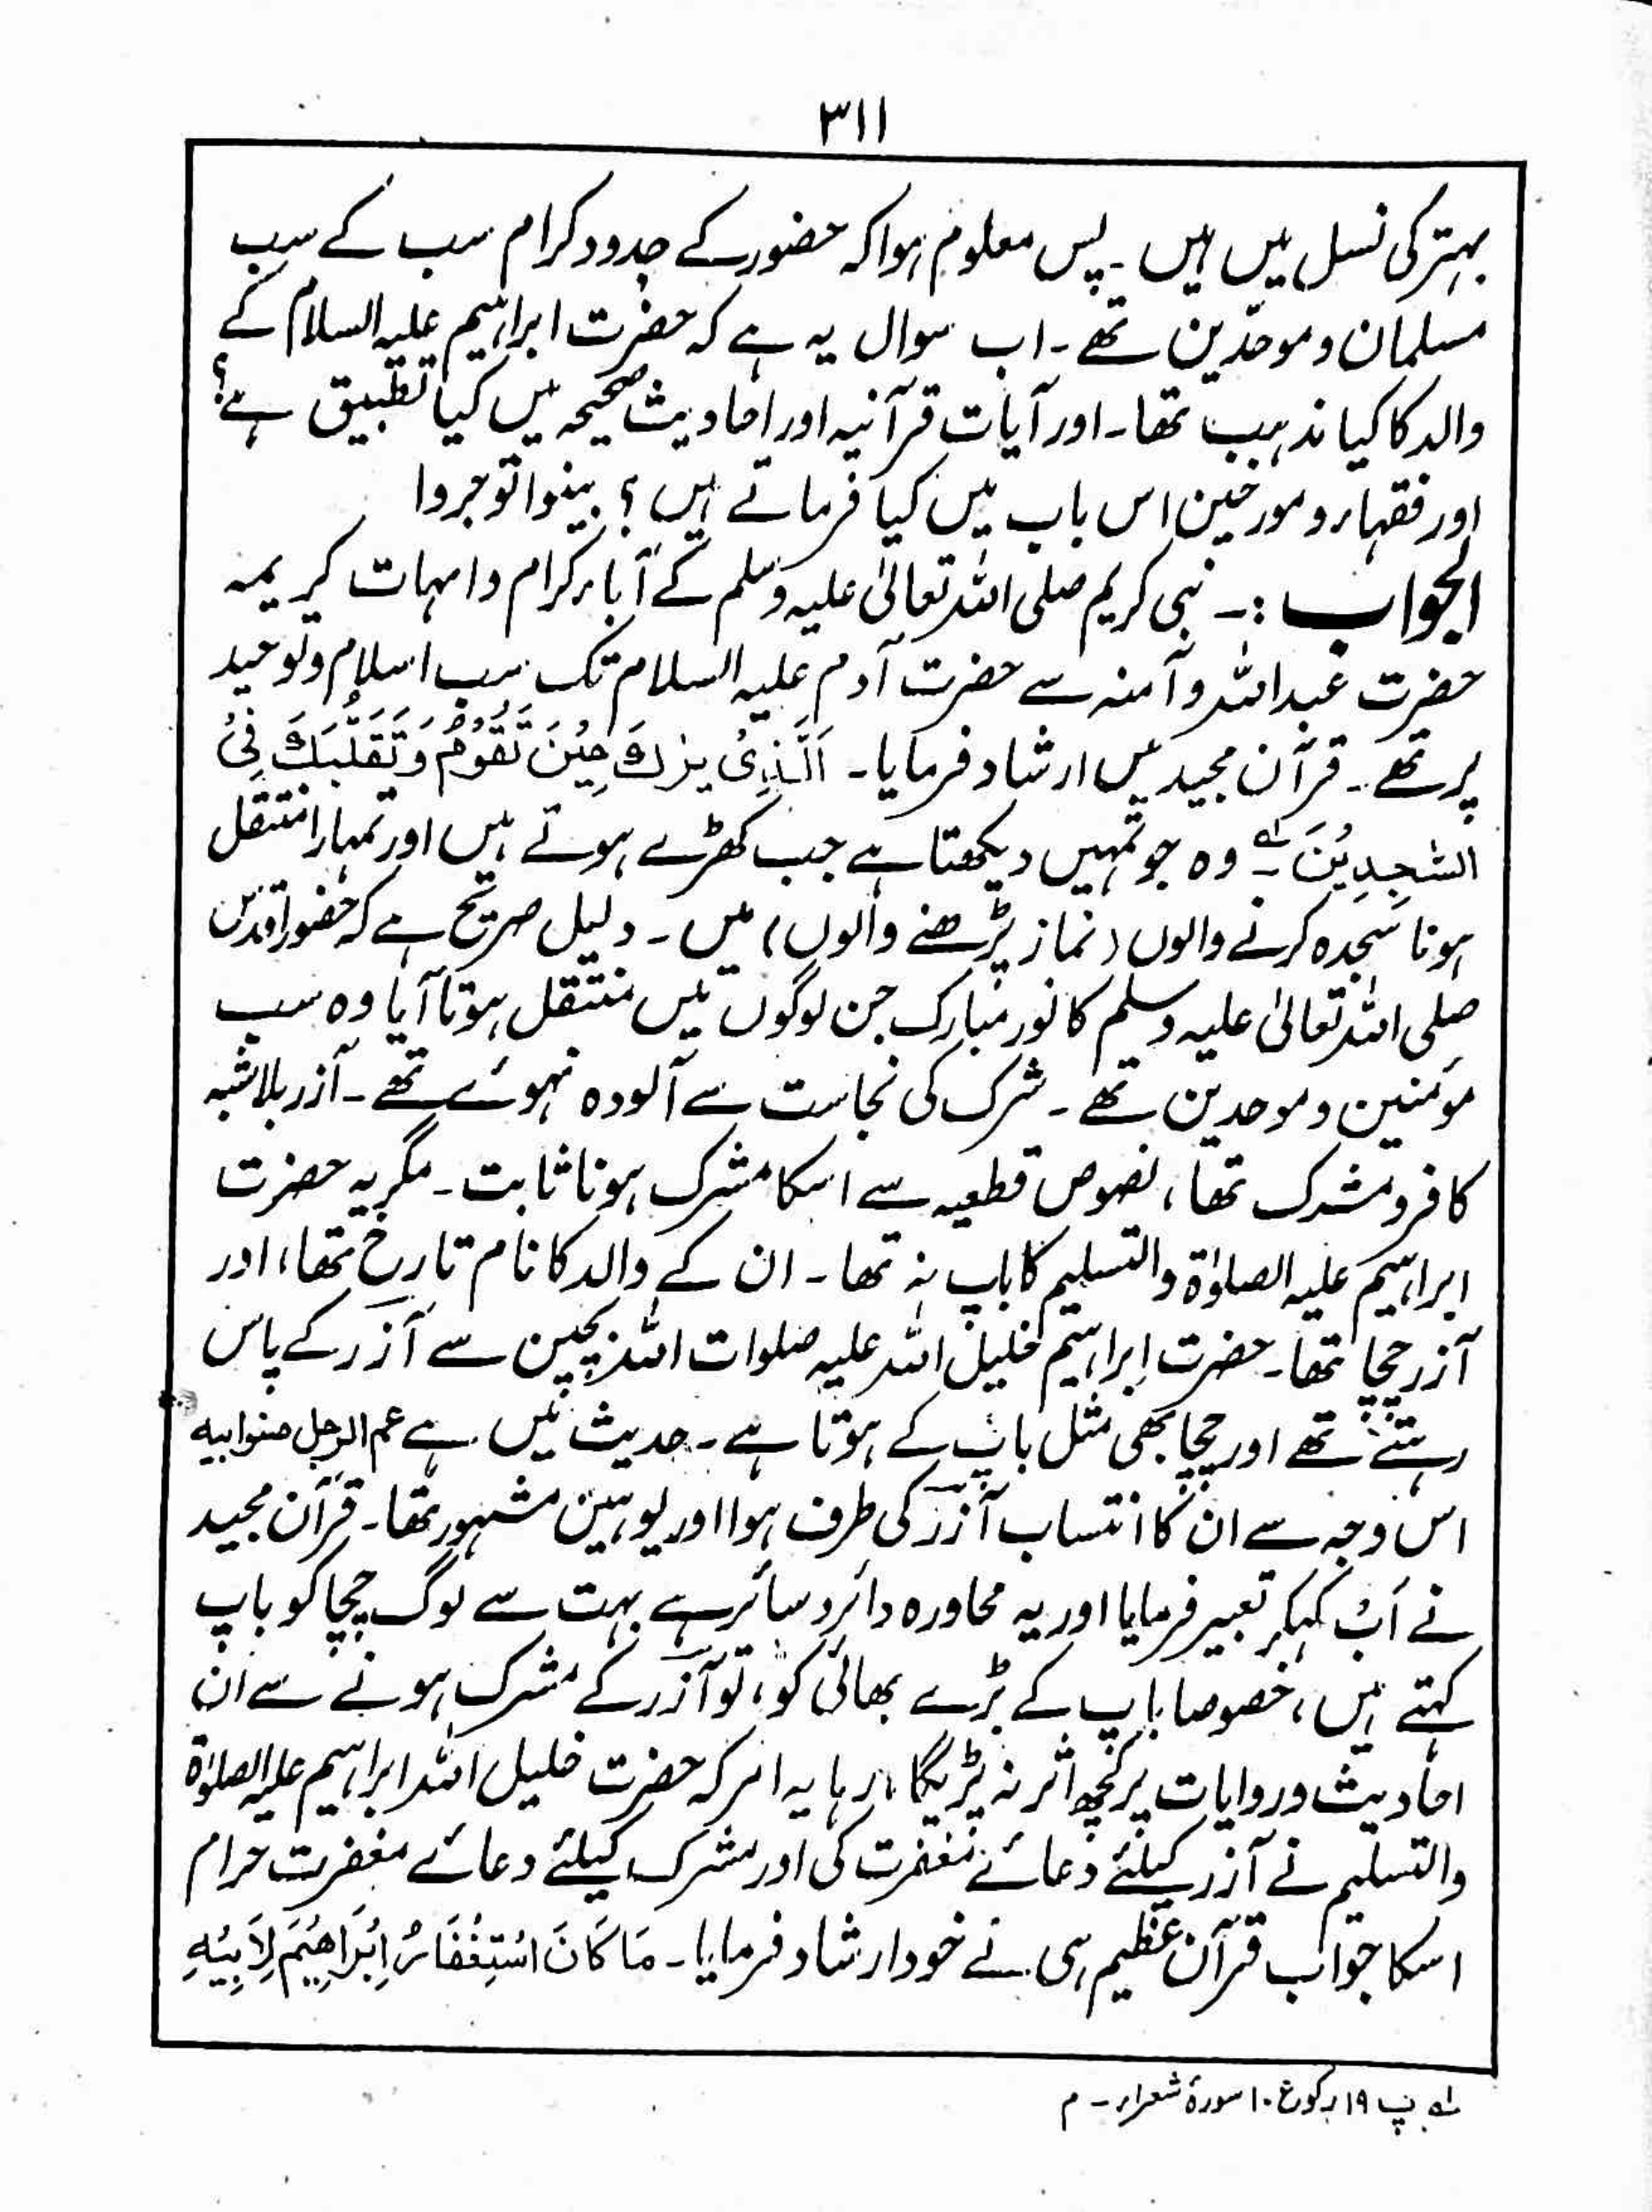 ۳۱۱
بہتر کی نسل میں ہیں ۔ پس معلوم ہوا کہ حضور کے جدود کرام سب کے سب
مسلمان و موحدین تھے ۔ اب سوال یہ ہے کہ حضرت ابراہیم علیہ السلام کے
والد کا کیا مذہب تھا ۔ اور آیات قرآنیہ اور احادیث صحیحہ میں کیا تطبیق ہے ؟
اور فقہاء و مورخین اس باب میں کیا فرماتے ہیں ؟ بینوا توجروا
الجواب :۔ نبی کریم صلی اللہ تعالیٰ علیہ وسلم کے آباء کرام و امہات کریمہ
حضرت عبداللہ و آمنہ سے حضرت آدم علیہ السلام تک سب اسلام و توحید
پر تھے ۔ قرآن مجید میں ارشاد فرمایا ۔ اَلَّذِیْ یَرٰكَ حِیْنَ تَقُوْمُ وَتَقَلُّبَكَ فِیْ
السّٰجِدِیْنَ ۔ لہ وہ جو تمہیں دیکھتا ہے جب کھڑے ہوتے ہیں اور تمہارا منتقل
ہونا سجدہ کرنے والوں (نماز پڑھنے والوں) میں ۔ دلیل صریح ہے کہ حضور اقدس
صلی اللہ تعالیٰ علیہ وسلم کا نور مبارک جن لوگوں میں منتقل ہوتا آیا وہ سب
مومنین و موحدین تھے ۔ شرک کی نجاست سے آلودہ نہوئے تھے ۔ آزر بلاشبہ
کافر و مشرک تھا ، نصوص قطعیہ سے اسکا مشرک ہونا ثابت ۔ مگر یہ حضرت
ابراہیم علیہ الصلوٰۃ والتسلیم کا باپ نہ تھا ۔ ان کے والد کا نام تارخ تھا ، اور
آزر چچا تھا ۔ حضرت ابراہیم خلیل اللہ علیہ صلوات اللہ بچپن سے آزر کے پاس
رہتے تھے اور چچا بھی مثل باپ کے ہوتا ہے ۔ حدیث میں ہے عم الرجل صنو ابیہ
اس وجہ سے ان کا انتساب آزر کی طرف ہوا اور یوہیں مشہور تھا ۔ قرآن مجید
نے اَبْ کہکر تعبیر فرمایا اور یہ محاورہ دائر و سائر ہے بہت سے لوگ چچا کو باپ
کہتے ہیں ، خصوصا باپ کے بڑے بھائی کو ، تو آزر کے مشرک ہونے سے ان
احادیث و روایات پر کچھ اثر نہ پڑیگا ، رہا یہ امر کہ حضرت خلیل اللہ ابراہیم علیہ الصلوٰۃ
والتسلیم نے آزر کیلئے دعائے مغفرت کی اور مشرک کیلئے دعائے مغفرت حرام
اسکا جواب قرآن عظیم ہی نے خود ارشاد فرمایا ۔ مَا كَانَ اسْتِغْفَارُ اِبْرَاهِیْمَ لِاَبِیْهِ
لہ پ ۱۹ رکوع ۱۰ سورۂ شعراء ۔ م